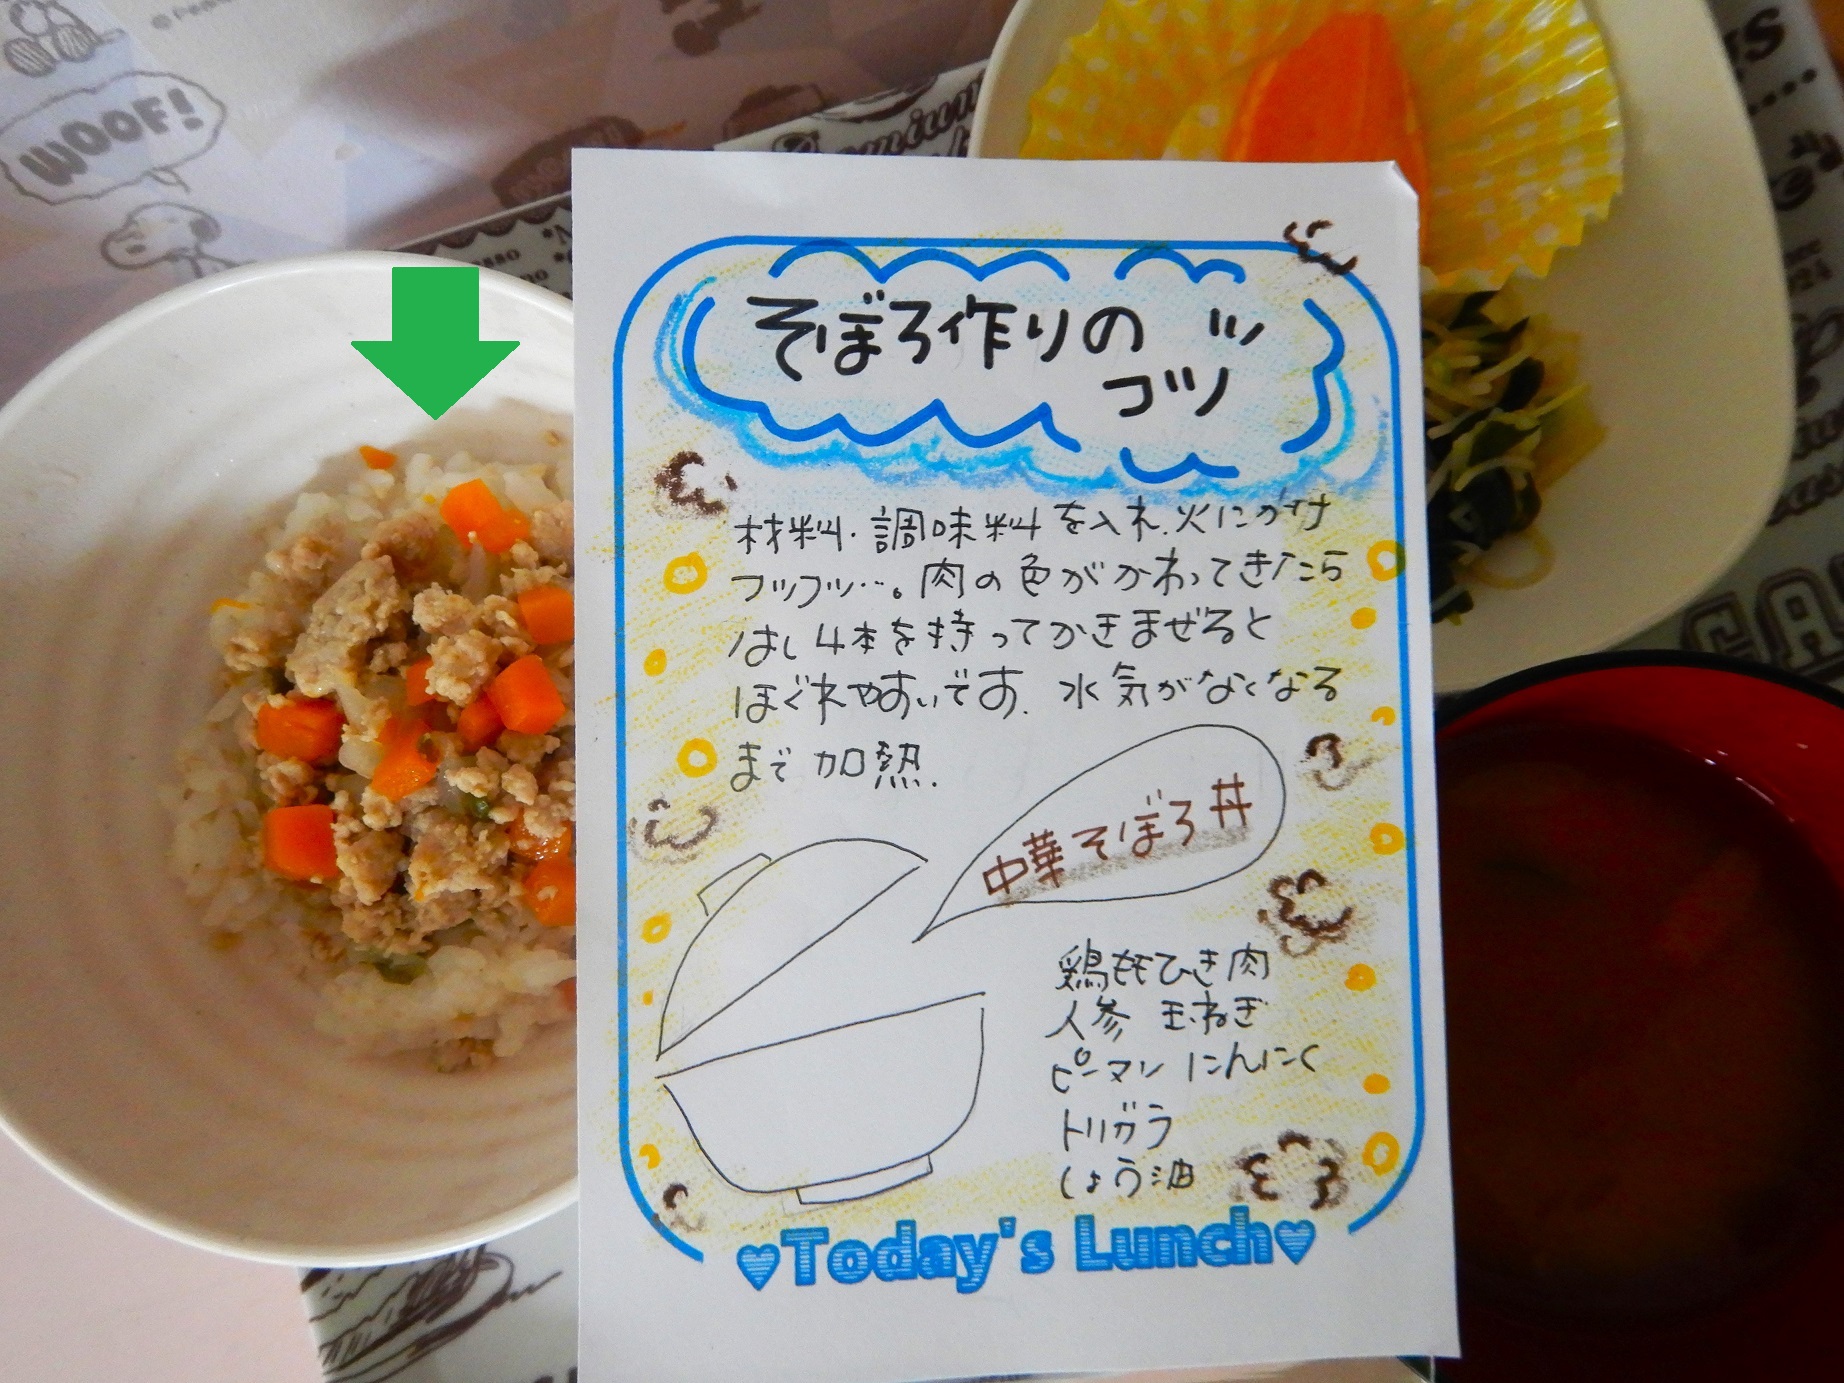 WOOF!
そぼろ作りの
コツ
材料・調味料を入れ、火にかけ
フツフツ…。肉の色がかわってきたら
はし4本を持ってかきまぜると
ほぐれやすいです。水気がなくなる
まで加熱.
中華そぼろ丼
鶏ももひき肉
人参 玉ねぎ
ピーマン にんにく
トリガラ
しょう油
♥Today's Lunch♥